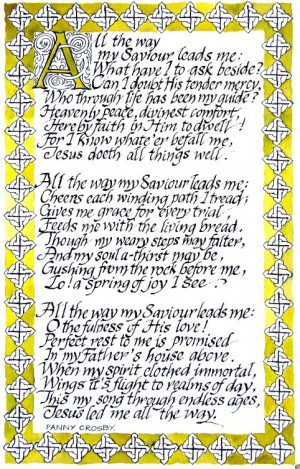 All the way
my Saviour leads me:
What have I to ask beside?
Can I doubt His tender mercy,
Who through life has been my guide?
Heavenly peace, divinest comfort,
Here by faith in Him to dwell!
For I know whate'er befall me,
Jesus doeth all things well.
All the way my Saviour leads me;
Cheers each winding path I tread;
Gives me grace for every trial,
Feeds me with the living bread.
Though my weary steps may falter,
And my soul a-thirst may be,
Gushing from the rock before me,
Lo! a spring of joy I see.
All the way my Saviour leads me:
O the fulness of His love!
Perfect rest to me is promised
In my Father's house above.
When my spirit clothed immortal,
Wings it's flight to realms of day,
This my song through endless ages,
Jesus led me all the way.
FANNY CROSBY.